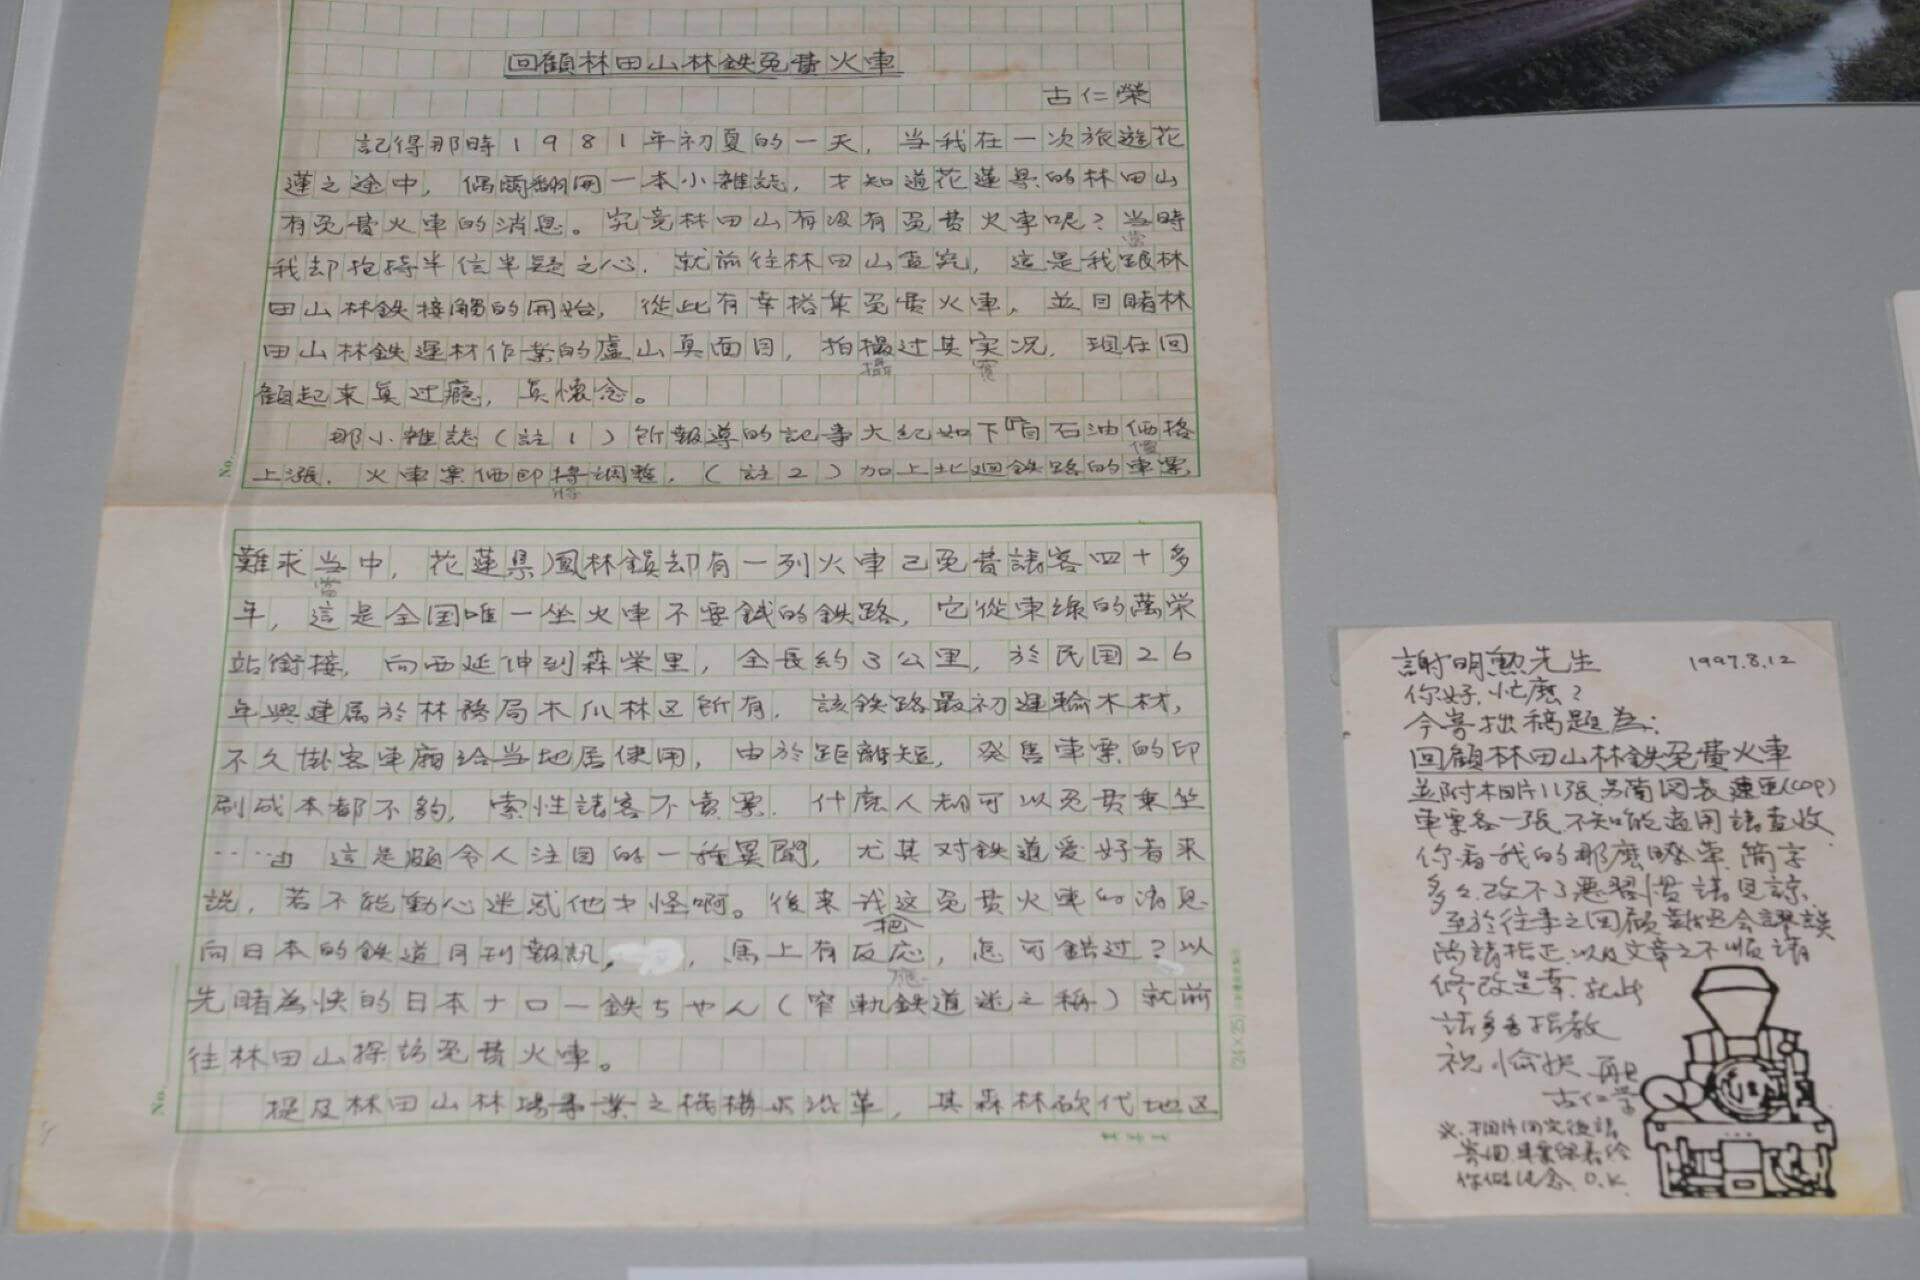 回顧林田山林鉄免費火車
古仁榮
記得那時1981年初夏的一天，当我在一次旅遊花
蓮之途中，偶爾翻開一本小雜誌，才知道花蓮県的林田山
有免費火車的消息。究竟林田山有没有免費火車呢？当時
當
我却抱持半信半疑之心，就前往林田山查究，這是我跟林
田山林鉄接觸的開始，從此有幸搭乗免費火車，並目睹林
田山林鉄運材作業的盧山真面目，拍撮过其実况，現在回
攝 實
顧起来真过癮，真懷念。
那小雜誌（註1）所報導的記事大紀如下『自石油価格
價
上漲，火車票価即将調整，（註2）加上北廻鉄路的車票，
將
難求当中，花蓮県鳳林鎮却有一列火車已免費請客四十多
當
年，這是全国唯一坐火車不要錢的鉄路，它從東線的萬栄
站銜接，向西延伸到森栄里，全長約3公里，於民国26
年興建属於林務局木瓜林区所有，該鉄路最初運輸木材，
不久掛客車廂给当地居使用，由於距離短，発售車票的印
刷成本都不夠，索性請客不賣票，什麽人都可以免費乗坐
……由 這是頗令人注目的一種異聞，尤其对鉄道愛好者来
説，若不能動心迷惑他才怪啊。後来我这免費火車的消息
把
向日本的鉄道月刊報訊，馬上有反応，怎可錯过？以
應
先睹為快的日本ナロー鉄ちゃん（窄軌鉄道迷之稱）就前
往林田山探訪免費火車。
提及林田山林場事業之機構与沿革，其森林砍伐地区
No.
No.
(24×25)
謝明勲先生 1997.8.12
你好，忙麽？
今寄拙稿題為：
回顧林田山林鉄免費火車
並附相片11張，另簡図長運更(COP)
車票各一張，不知能適用請查收
你看我的那麽潦草，簡字
多々，改不了悪習慣請見諒，
至於往事之回顧難免会謬誤
尚請指正，以及文章之不順請
修改是幸，就此
請多多指教
祝愉快 再見
古仁栄
※相片用完後請
寄回，車票留着给
你做纪念，O.K.